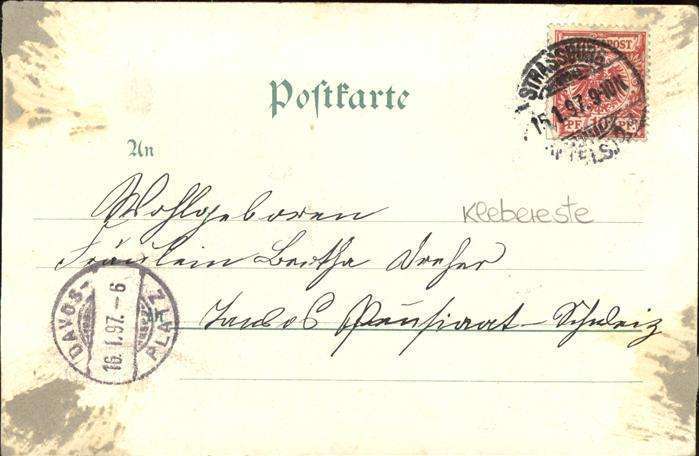 STRASSBURG
15.1.97. 9-10 N
POST
10 PF
Postkarte
An
Wohlgeboren
Klebereste
Fräulein Bertha Dreher
Schweiz
DAVOS-PLATZ
16.I.97.-6